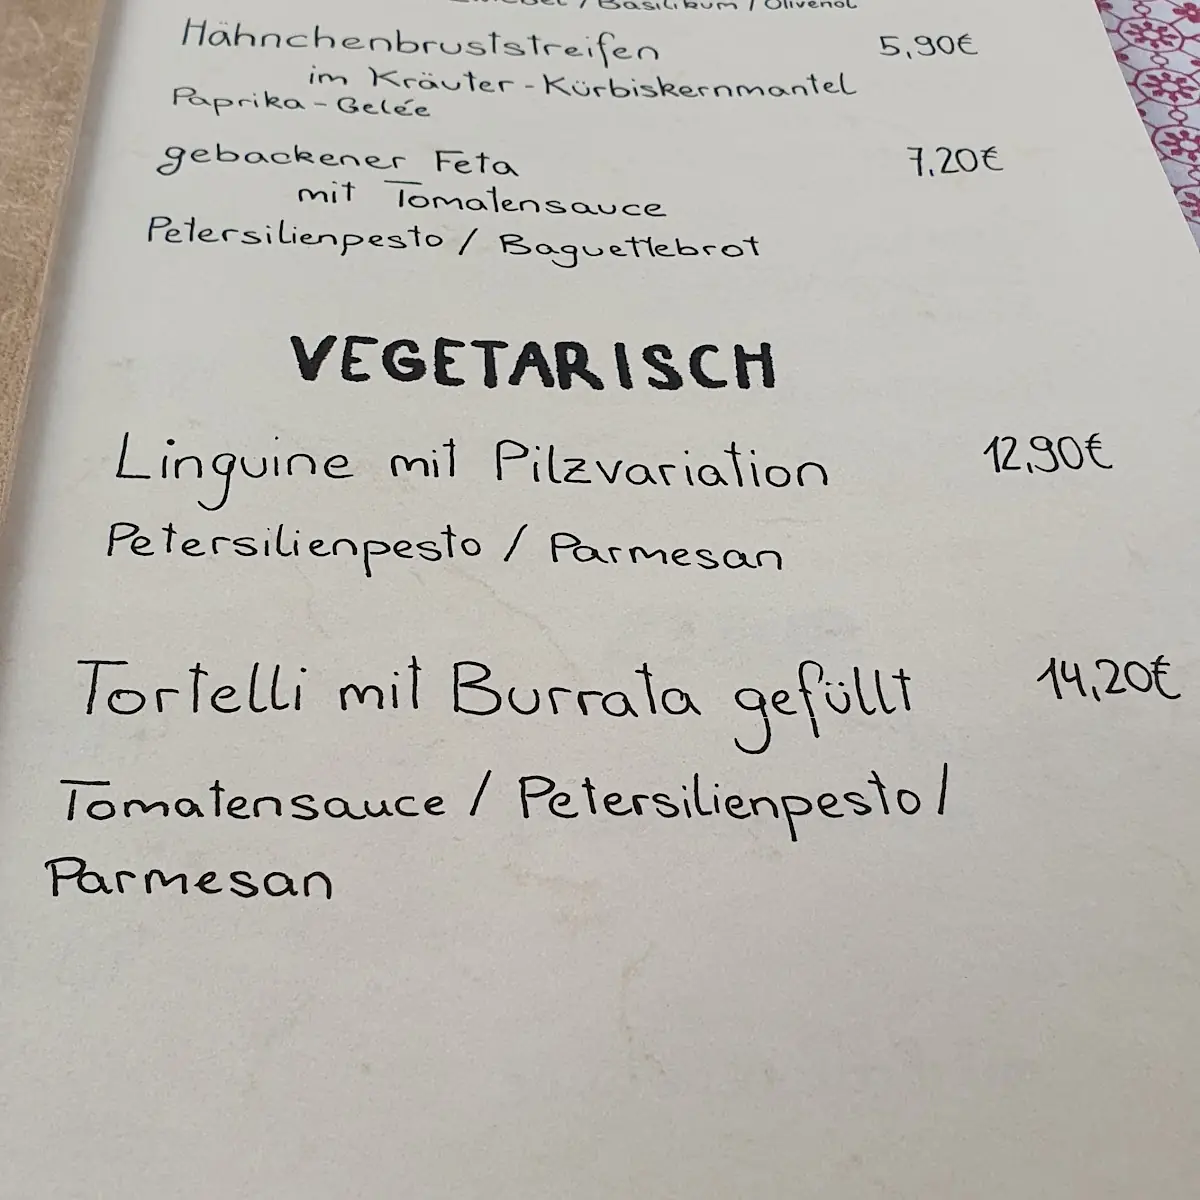 Zwiebel / Basilikum / Olivenöl
Hähnchenbruststreifen 5,90€
im Kräuter-Kürbiskernmantel
Paprika-Gelée
gebackener Feta 7,20€
mit Tomatensauce
Petersilienpesto / Baguettebrot
VEGETARISCH
Linguine mit Pilzvariation 12,90€
Petersilienpesto / Parmesan
Tortelli mit Burrata gefüllt 14,20€
Tomatensauce / Petersilienpesto /
Parmesan